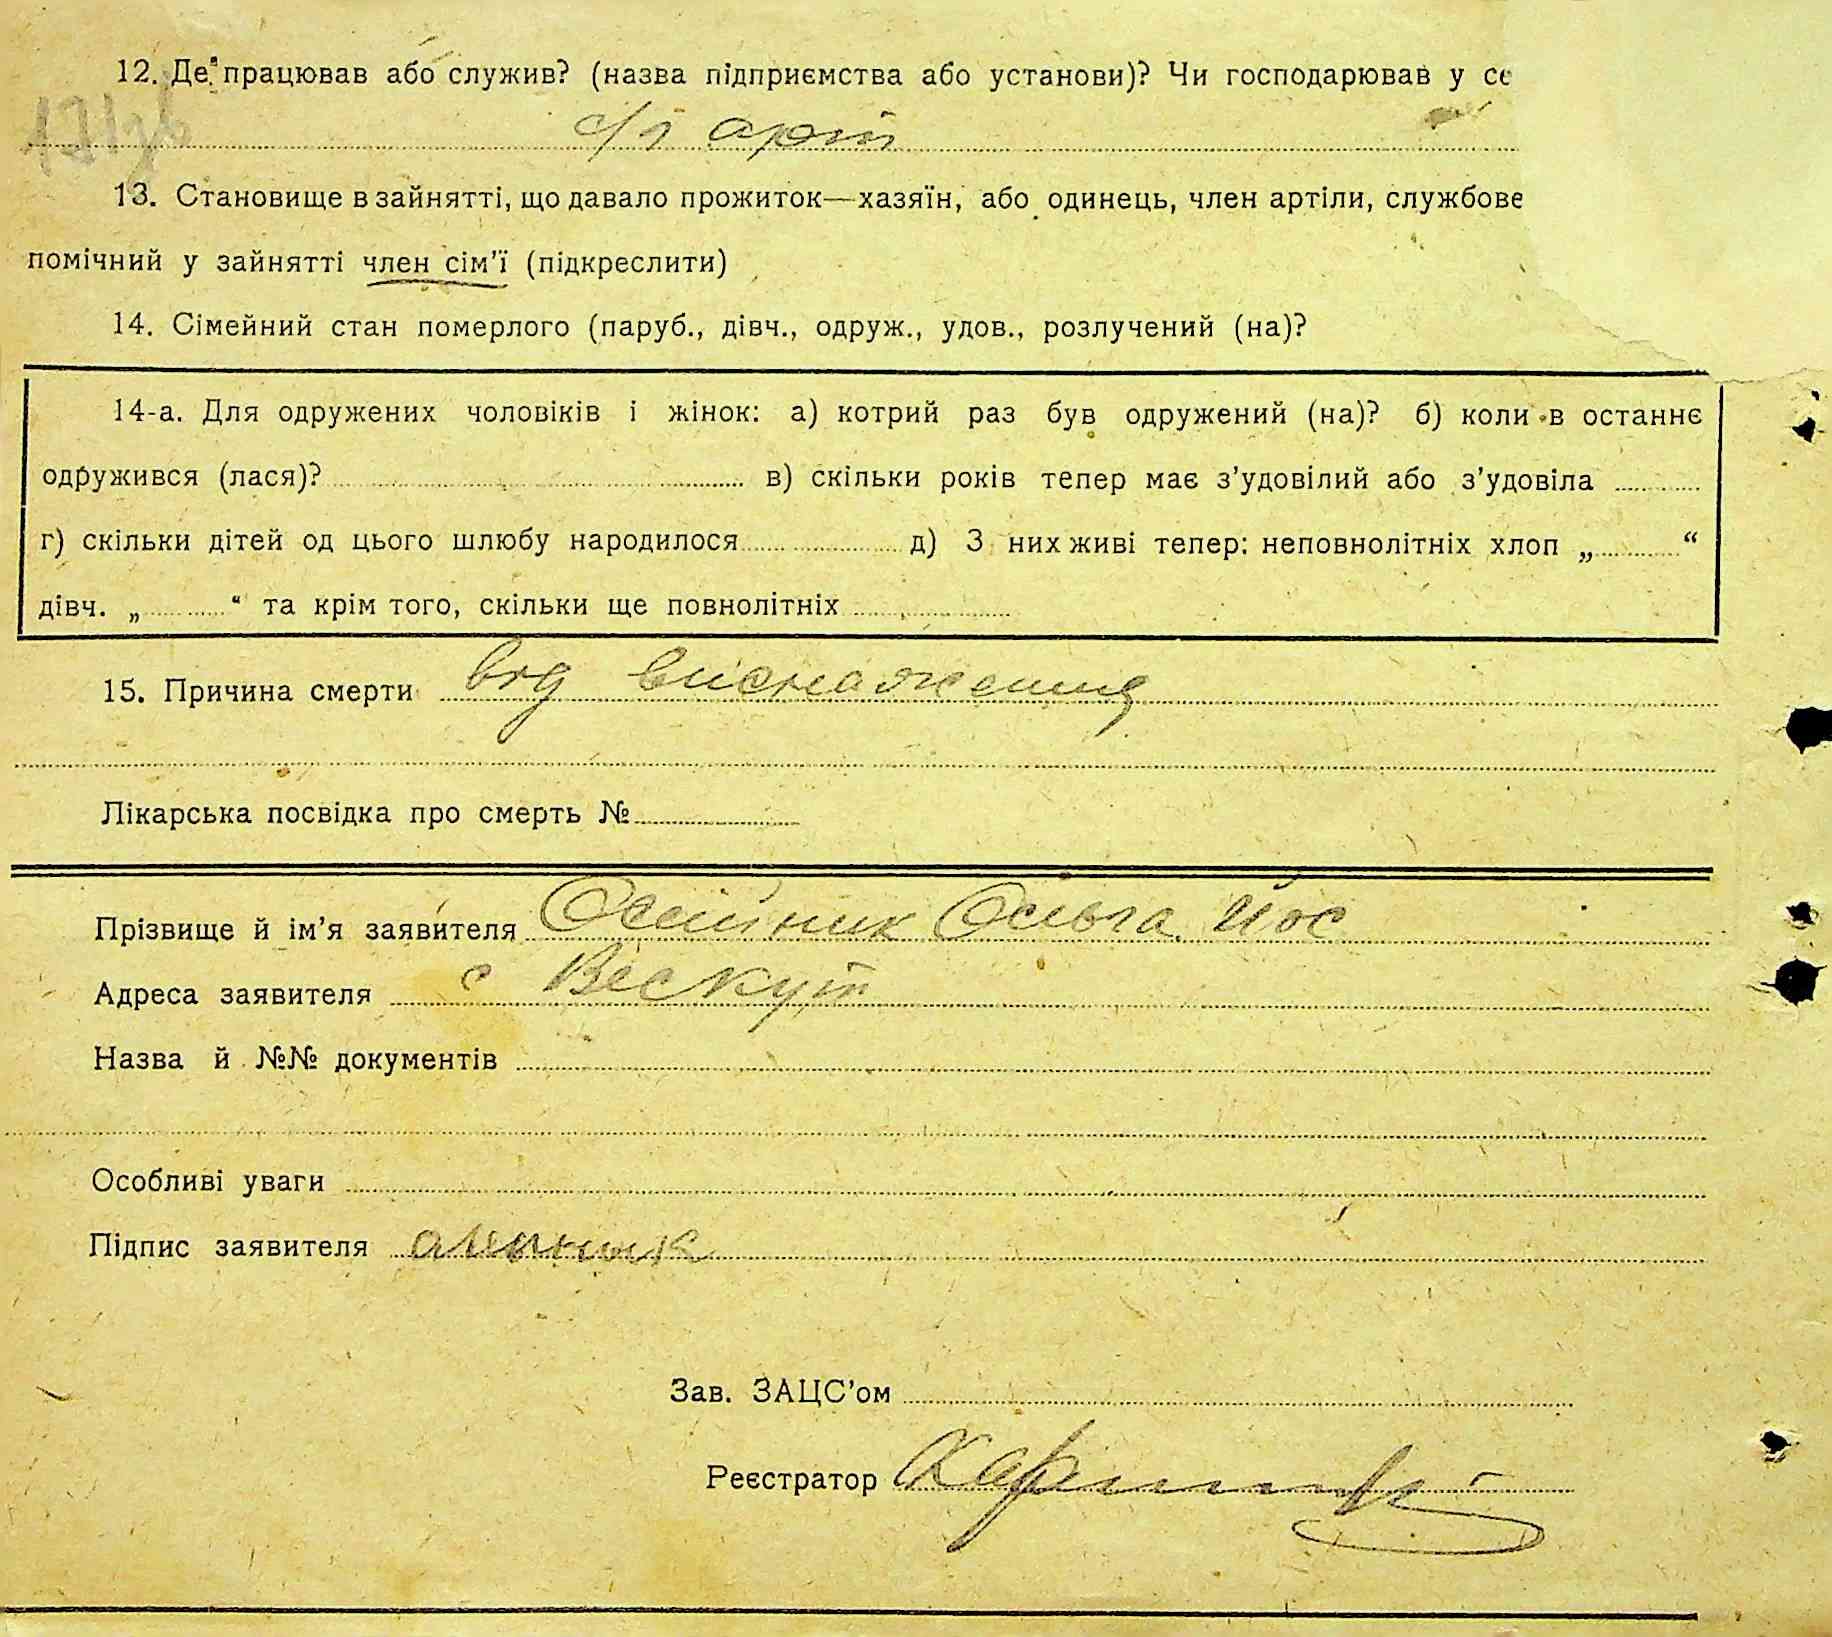 12. Де працював або служив? (назва підприємства або установи)? Чи господарював у се
171зв
с/г арт
13. Становище в зайнятті, що давало прожиток—хазяїн, або одинець, член артіли, службове
помічний у зайнятті член сім'ї (підкреслити)
14. Сімейний стан померлого (паруб., дівч., одруж., удов., розлучений (на)?
14-а. Для одружених чоловіків і жінок: а) котрий раз був одружений (на)? б) коли в останнє
одружився (лася)? в) скільки років тепер має з'удовілий або з'удовіла
г) скільки дітей од цього шлюбу народилося д) З них живі тепер: неповнолітніх хлоп „ “
дівч. „ “ та крім того, скільки ще повнолітніх
15. Причина смерти від виснаження
Лікарська посвідка про смерть №
Прізвище й ім'я заявителя Олійник Ольга Йос
Адреса заявителя с
Назва й №№ документів
Особливі уваги
Підпис заявителя
Зав. ЗАЦС'ом
Реєстратор